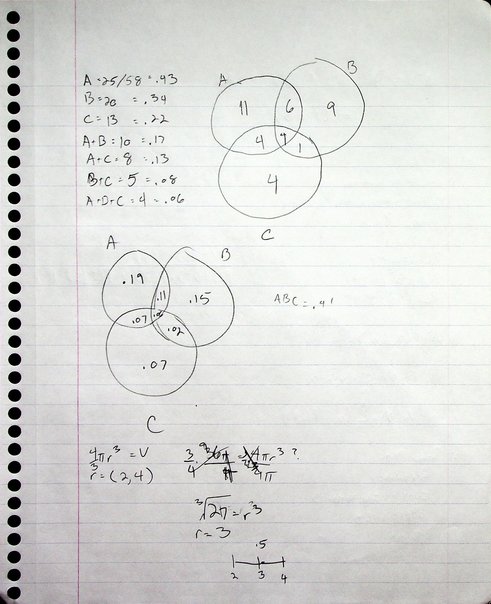 A = 25/58 = .43
B = 20 = .34
C = 13 = .22
A+B = 10 = .17
A+C = 8 = .13
B+C = 5 = .08
A+B+C = 4 = .06
A
B
11
6
9
4
1
4
C
A
B
.19
.11
.15
.07
.02
.07
ABC = .41
C
4πr³ = V
3
r = (2,4)
3
4
πr³ ?
³√27 = r³
r = 3
.5
2 3 4